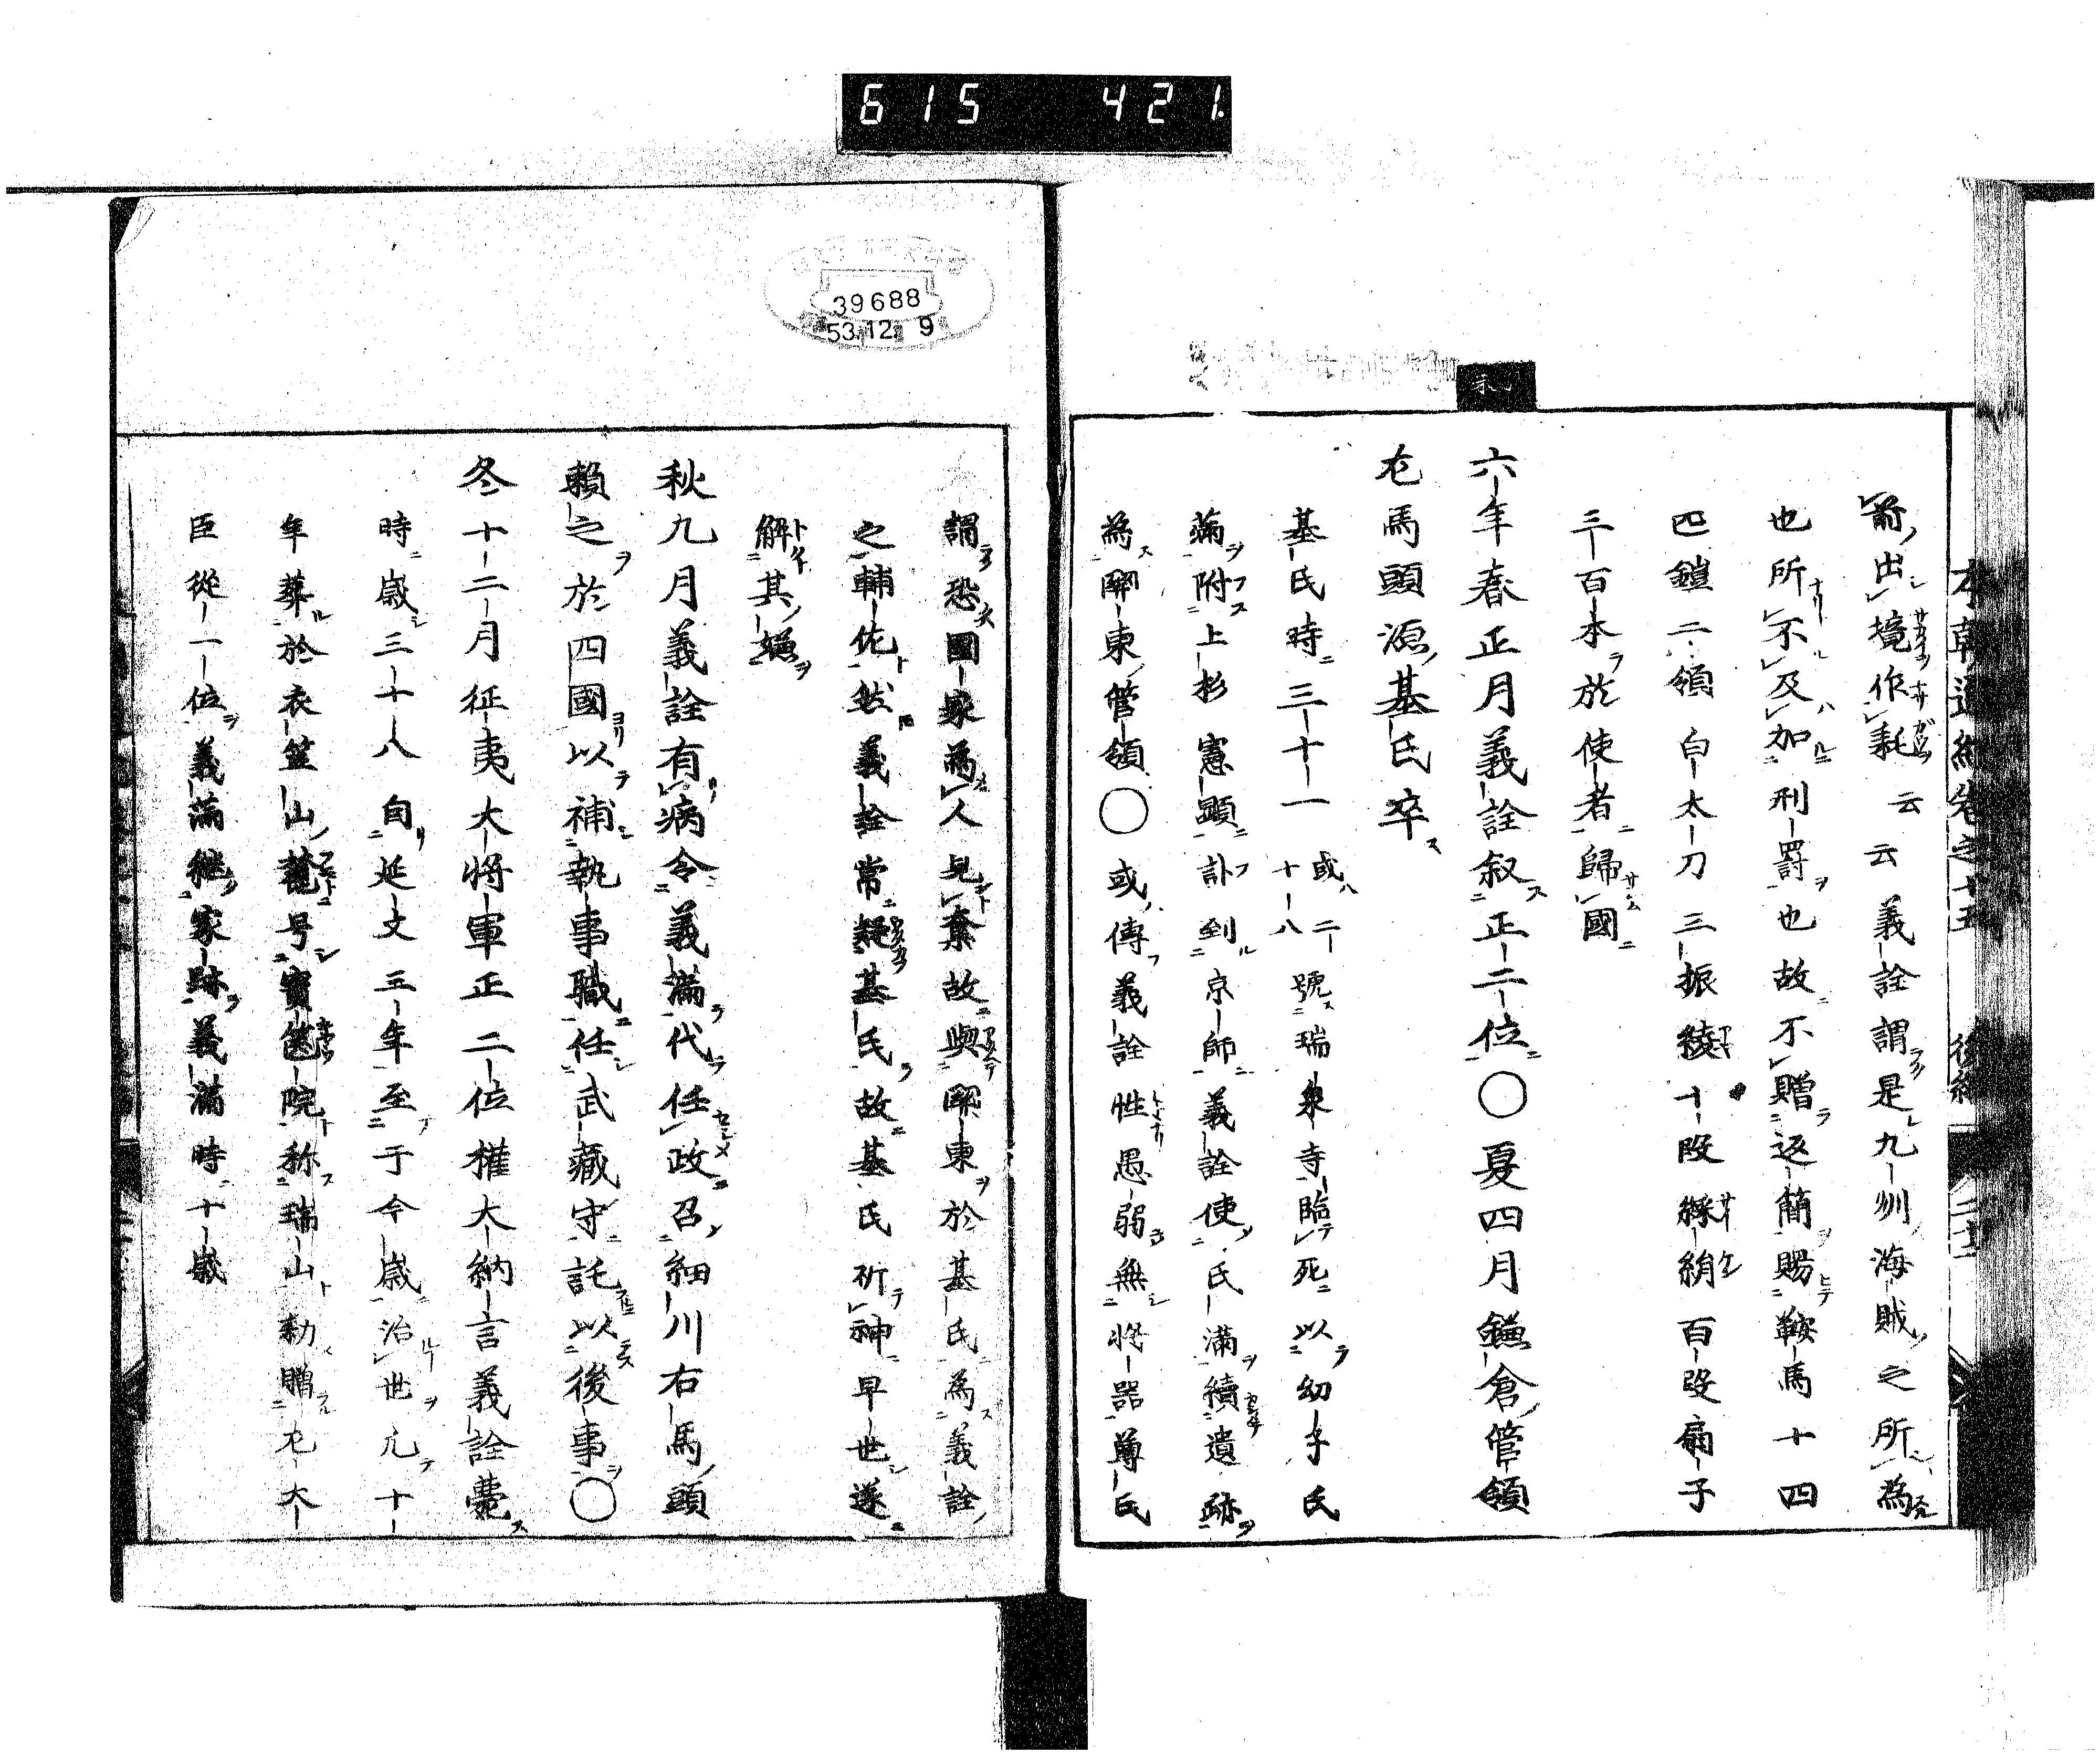 615 421.
39688
53.12.9
箭出境作耗云云義詮謂是九州海賊之所為
也所不及加刑罰也故不贈返簡賜鞍馬十四
匹鎧二領白太刀三振綾十段綵絹百段扇子
三百本於使者歸國
六年春正月義詮叙正二位○夏四月鎌倉管領
左馬頭源基氏卒
基氏時三十一或二十八號瑞泉寺臨死以幼子氏
滿附上杉憲顯訃到京師義詮使氏滿續遺跡
為關東管領○或傳義詮性愚弱無將器尊氏
謂恐國家為人見奪故與關東於基氏為義詮
之輔佐然義詮常疑基氏故基氏祈神早世遂
解其嫌
秋九月義詮有病令義滿代任政召細川右馬頭
賴之於四國以補執事職任武藏守託以後事○
冬十二月征夷大将軍正二位權大納言義詮薨
時歳三十八自延文三年至于今歳治世凡十
年葬於衣笠山麓号寳篋院称瑞山勅贈左大
臣從一位義滿継家跡義滿時十歳